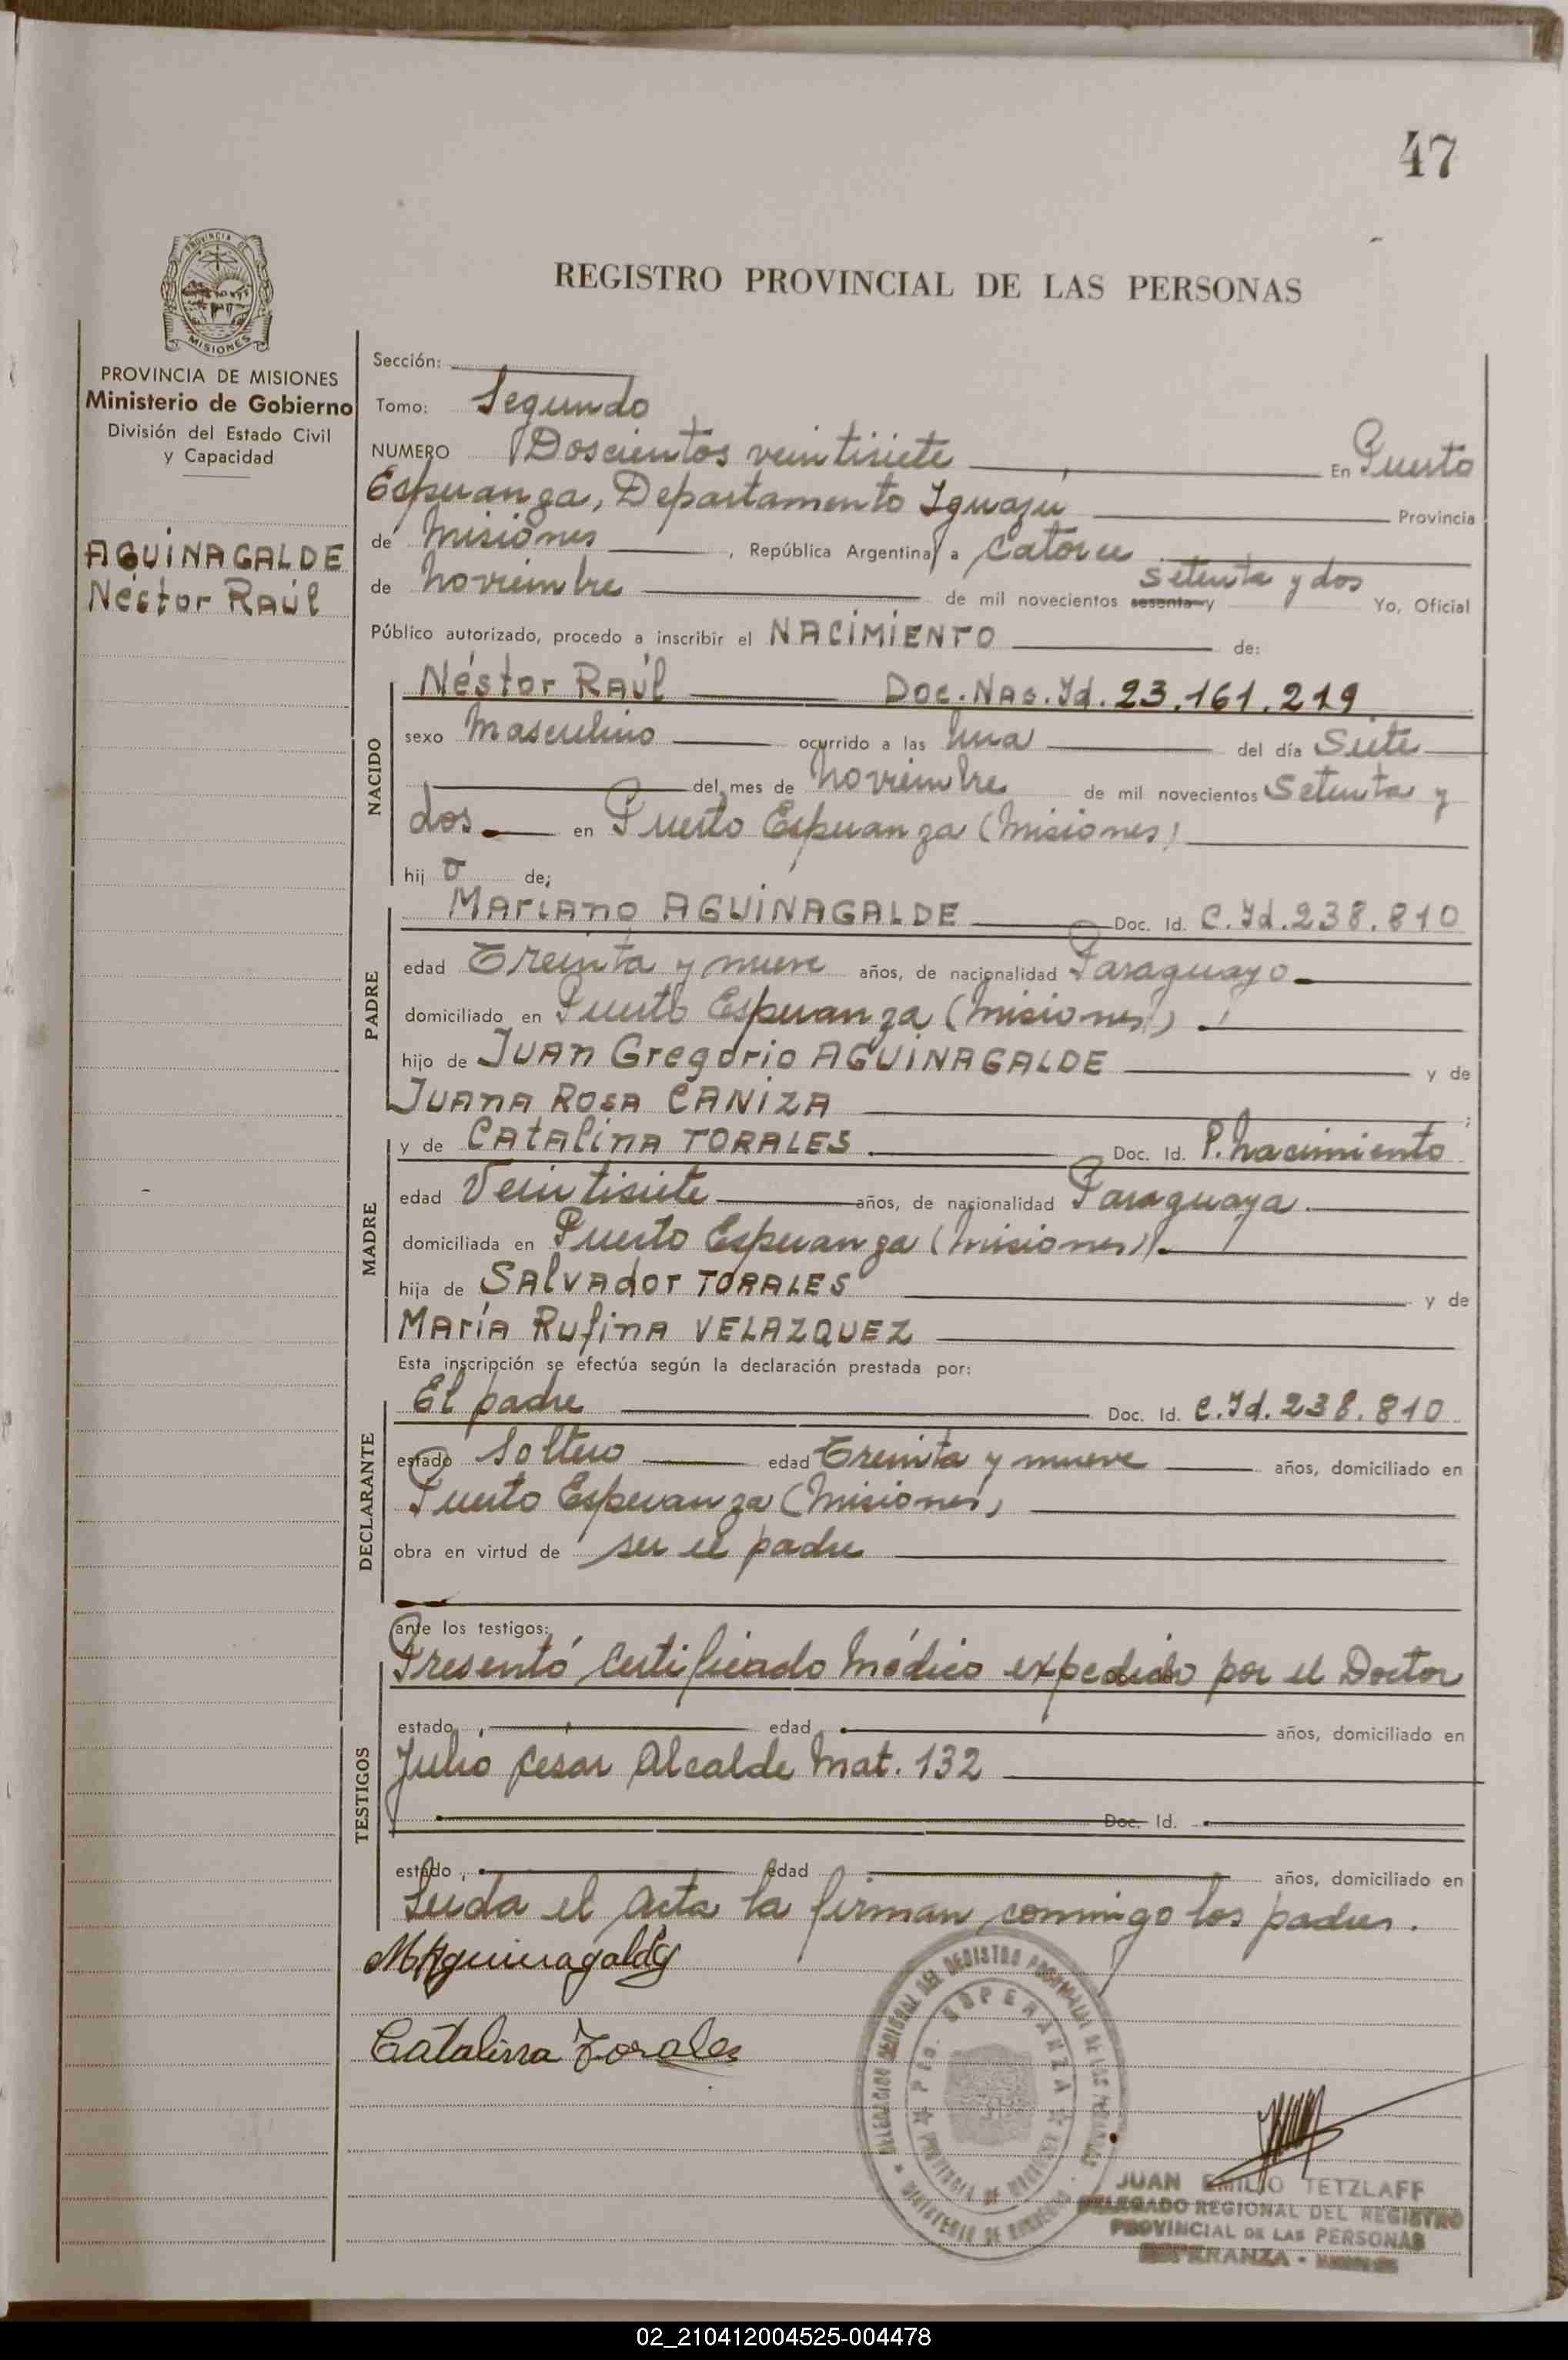 47
PROVINCIA DE
MISIONES
PROVINCIA DE MISIONES
Ministerio de Gobierno
División del Estado Civil
y Capacidad
AGUINAGALDE
Néstor Raúl
REGISTRO PROVINCIAL DE LAS PERSONAS
Sección:
Tomo: Segundo
NUMERO Doscientos veintisiete En Puerto
Esperanza, Departamento Iguazú Provincia
de Misiones, República Argentina, a Catorce
de Noviembre de mil novecientos sesenta y setenta y dos Yo, Oficial
Público autorizado, procedo a inscribir el NACIMIENTO de:
NACIDO
Néstor Raúl Doc. Nac. Id. 23.161.219
sexo Masculino ocurrido a las Una del día Siete
del mes de Noviembre de mil novecientos Setenta y
dos. en Puerto Esperanza (Misiones)
hij o de:
PADRE
Mariano AGUINAGALDE Doc. Id. C. Id. 238.810
edad Treinta y nueve años, de nacionalidad Paraguayo.
domiciliado en Puerto Esperanza (Misiones).
hijo de Juan Gregorio AGUINAGALDE y de
Juana Rosa CANIZA ;
MADRE
y de Catalina TORALES. Doc. Id. P. Nacimiento
edad Veintisiete años, de nacionalidad Paraguaya.
domiciliada en Puerto Esperanza (Misiones).
hija de Salvador TORALES y de
María Rufina VELAZQUEZ
Esta inscripción se efectúa según la declaración prestada por:
DECLARANTE
El padre Doc. Id. C. Id. 238.810
estado Soltero edad Treinta y nueve años, domiciliado en
Puerto Esperanza (Misiones)
obra en virtud de ser el padre
ante los testigos:
TESTIGOS
Presentó Certificado Médico expedido por el Doctor
estado edad años, domiciliado en
Julio Cesar Alcalde Mat. 132
Doc. Id.
estado edad años, domiciliado en
Leida el Acta la firman conmigo los padres.
MAguinagalde
Catalina Torales
DELEGACION REGIONAL DEL REGISTRO PROVINCIAL DE LAS PERSONAS
Pto. ESPERANZA
PROVINCIA DE MISIONES
MINISTERIO DE GOBIERNO
JUAN EMILIO TETZLAFF
DELEGADO REGIONAL DEL REGISTRO
PROVINCIAL DE LAS PERSONAS
ESPERANZA -
02_210412004525-004478